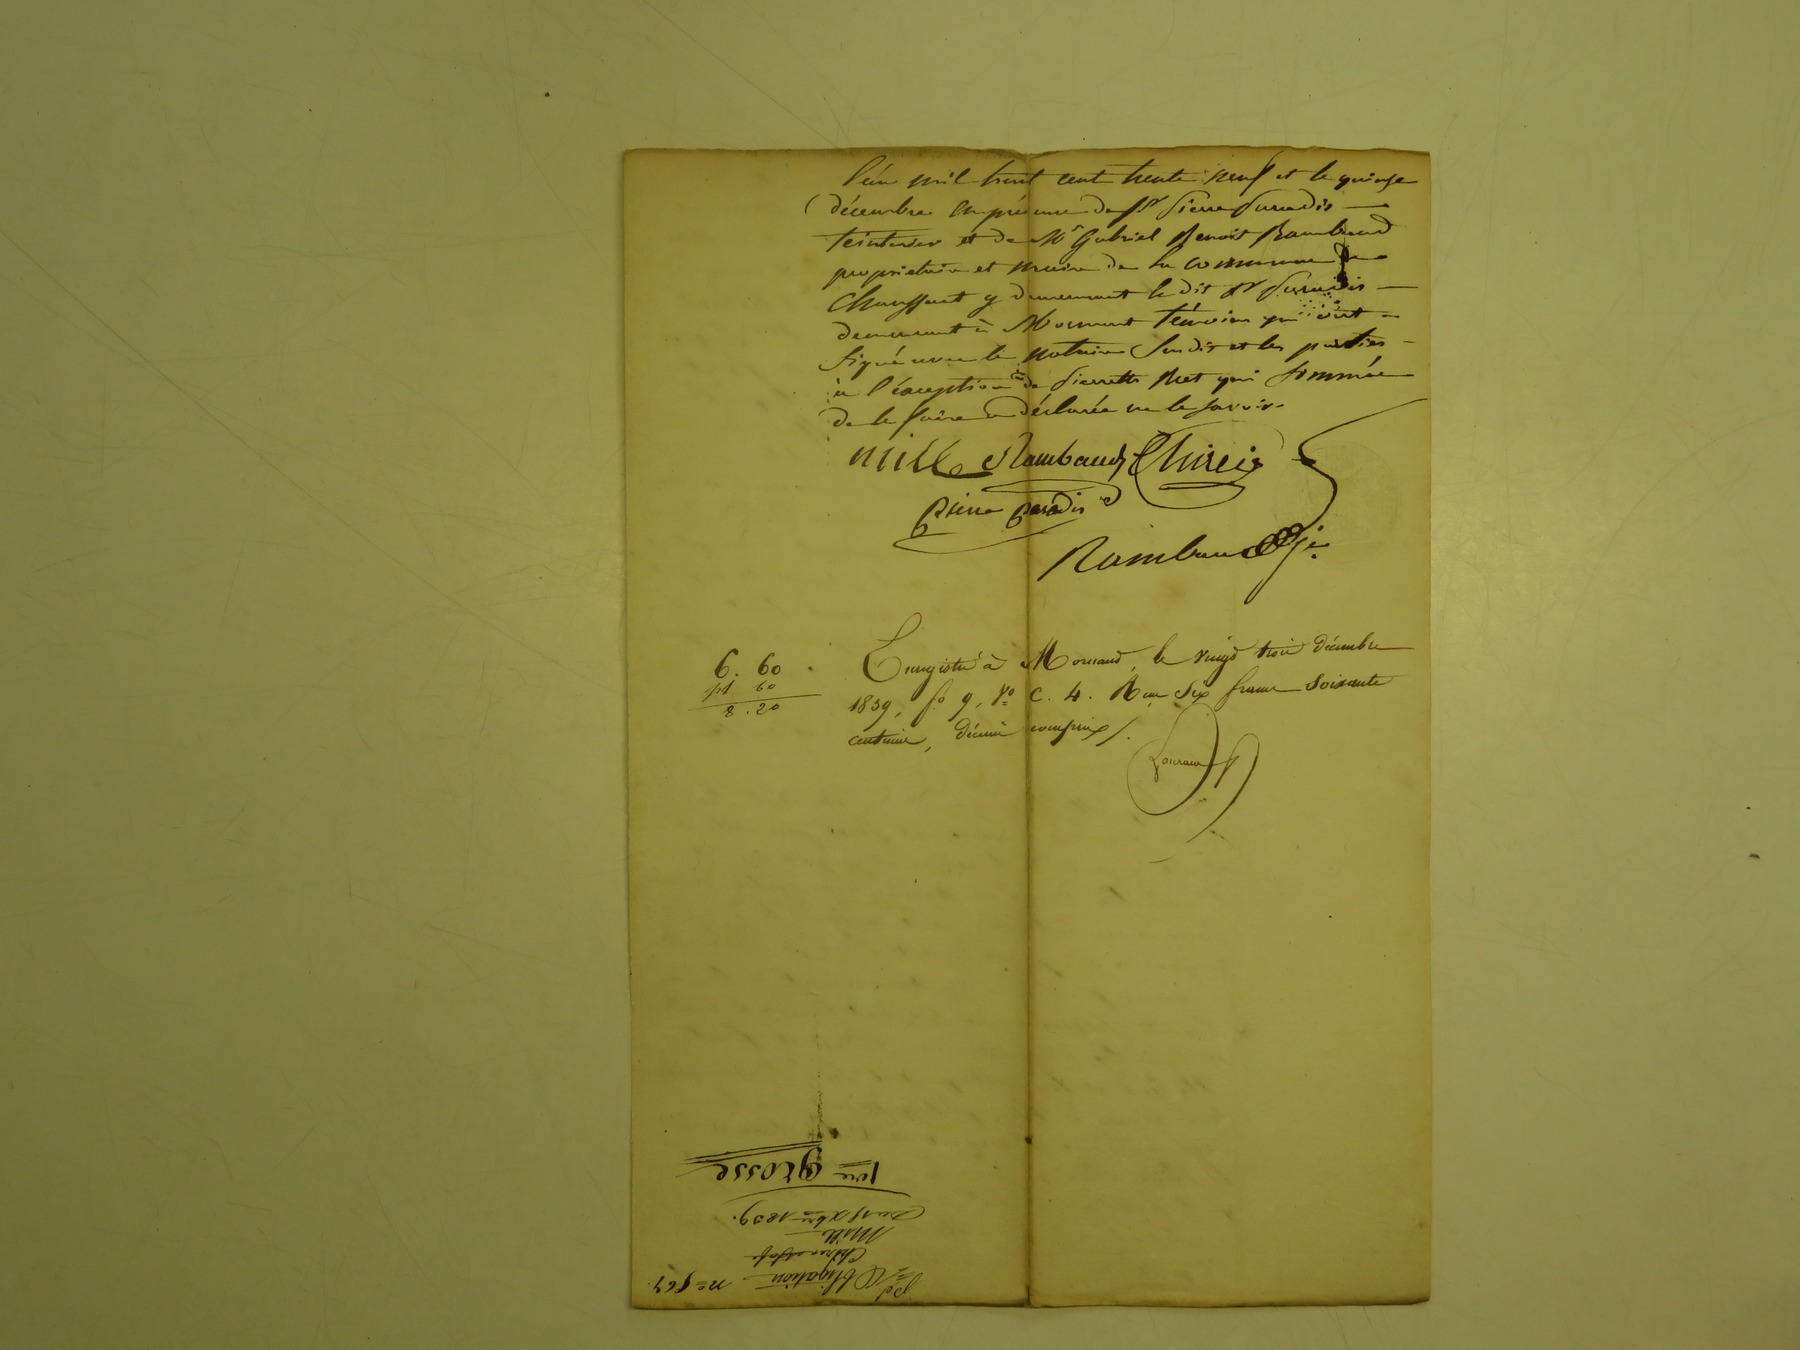 l'an mil huit cent trente neuf et le quinze
décembre en présence de Sr Pierre Paradis
teinturier et de Mr Gabriel Benoit Rambaud
propriétaire et maire de la commune de
Chaussant y demeurant le dit Sr Paradis
demeurant à Mornant témoins qui ont
signé avec le notaire susdit et les parties
à l'éxception de Pierrette Met qui sommée
de le faire a déclarée ne le savoir.
Mille Rambaud
Pierre Paradis
Rambaud
6. 60
60
8. 20
Enregistré à Mornand, le vingt trois décembre
1839, fo 9, Vo C. 4. Reçu Six francs soixante
centimes, décime compris
1ere grosse
Du 15 Xbre 1839.
Mille
Obligation